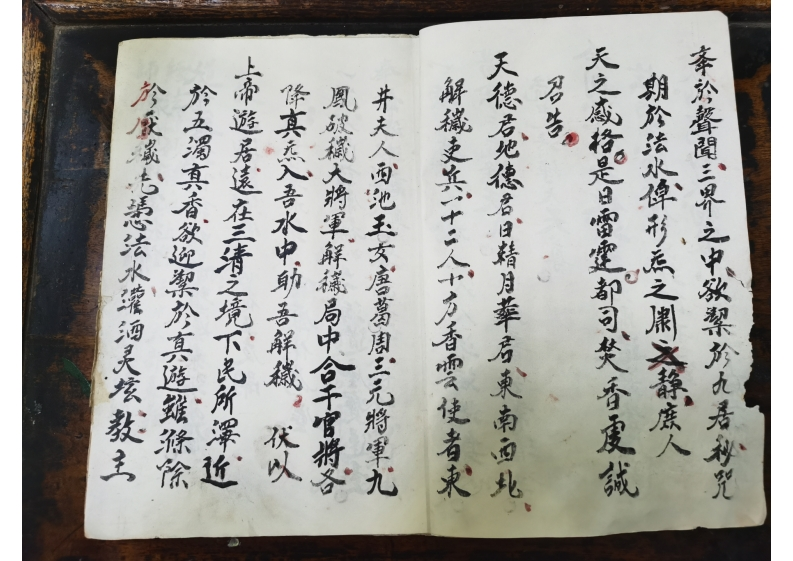 夆於聲聞三界之中欲潔於九居秘咒
期於法水俾形炁之肅之靜庶人
天之感格是日雷霆都司焚香虔誠
召告
天德君地德君日精月華君東南西北
解穢吏兵一十二人十方香雲使者東
井夫人西池玉女唐葛周三元將軍九
鳳破穢大將軍解穢局中合千官將各
降真炁入吾水中助吾解穢 伏以
上帝遊居遠在三清之境下民所澤近
於五濁真香欲迎潔於真遊雖滌除
於厭穢先憑法水灌洒灵坛教主